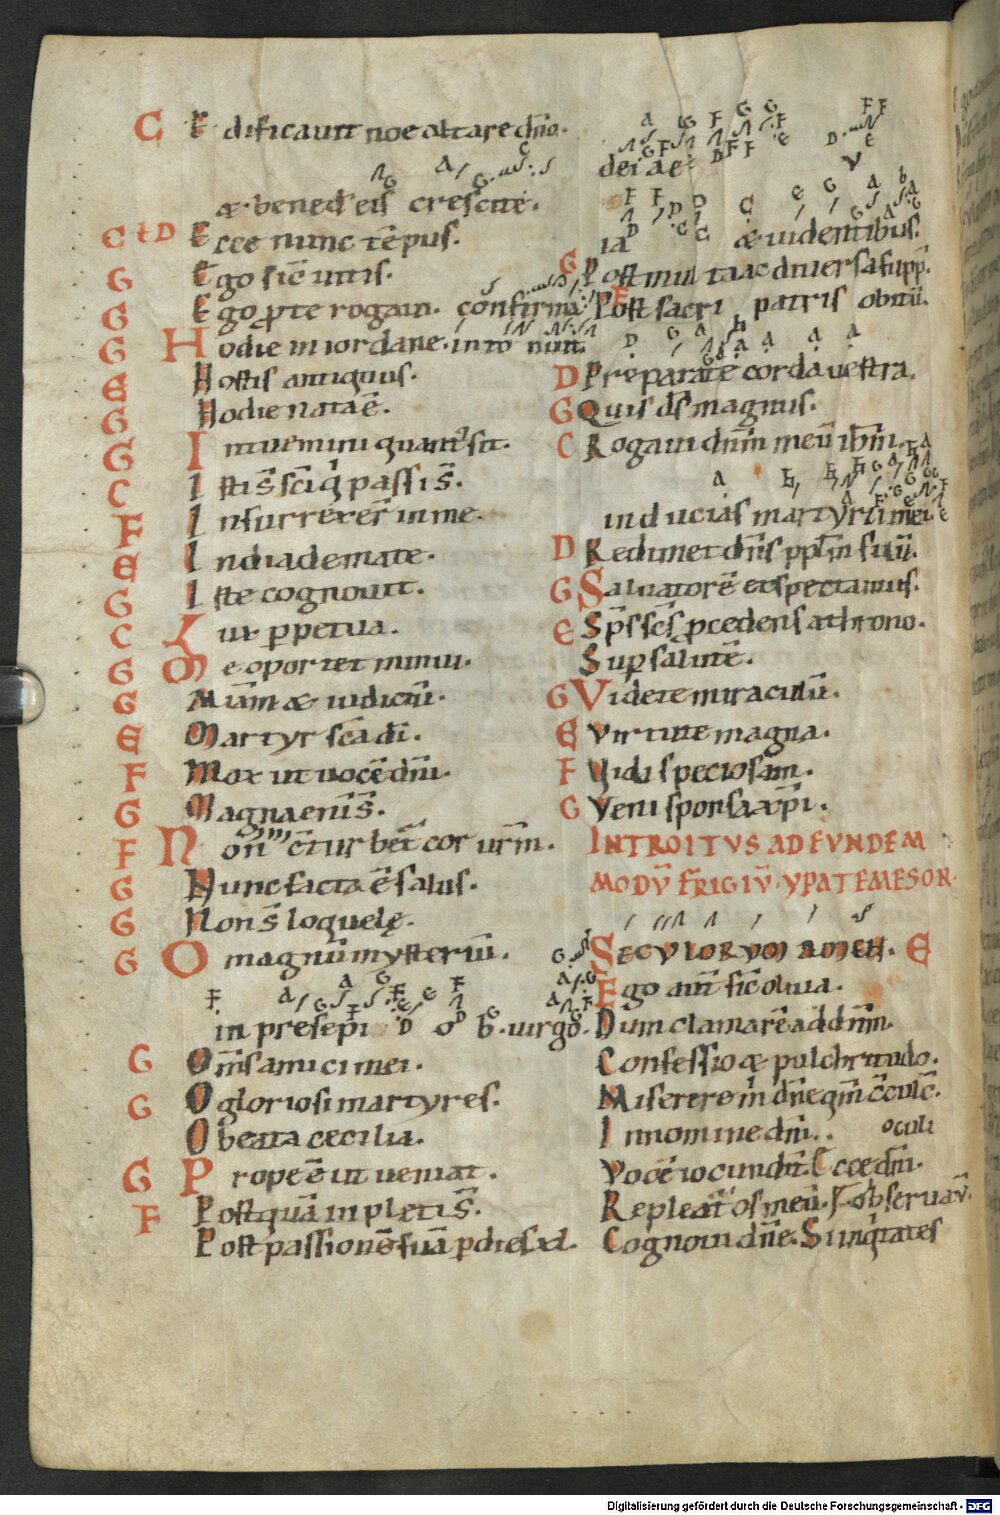 C Edificauit noe altare dño.
æ bened' eis crescite.
C t D Ecce nunc tēpus.
G Ego sic̄ uitis.
G Ego p te rogaui. confirma
G Hodie in iordane. intō nuit.
E Hostis antiquus.
G Hodie nata ē.
G Intuemini quant' sit.
C Isti s̄ sc̄i q̇ passi s̄.
F Insurrexer̄ in me.
E In diademate.
G Iste cognouit.
C Lux ppetua.
G Me oportet minui.
G Miām æ iudiciū.
E Martyr sc̄a di.
F Mox ut uocē dñi.
G Magna enī s̄.
F Non c̄turbet' cor urm.
G Nunc facta ē salus.
G Non s̄ loquelę.
G O magnū mysteriū.
in presepi o b. uirgo.
G Oms amici mei.
G O gloriosi martyres.
O beata cecilia.
G Prope ē ut ueniat.
F Postquā inpleti s̄.
Post passionē suā p dies xl.
dei ae
ia æ uidentibus.
G Post multa ac diuersa supp.
F Post sacri patris obitū.
D Preparate corda uestra.
G Quis ds magnus.
C Rogaui dnm meū ibm.
inducias martyrii mei.
D Redimet dns pplm suū.
G Saluatorē expectamus.
E Sps scs pcedens a throno.
Sup salutē.
G Videte miraculū.
E Virtute magna.
F Vidi speciosam.
G Veni sponsa xpi.
INTROITVS AD EVNDEM
MODV̄ FRIGIV̄. YPATE MESON.
SECVLORVM AMEN. E
Ego autē sic̄ oliua.
Dum clamarē ad dnm.
Confessio æ pulchritudo.
Miserere m̄ dne qm c̄culc̄.
In nomine dni. oculi
Vocē iocundit. Ecce dn̄.
Repleat' os meū. Si obseruav̄.
Cognoui dne. Si iniq̇tates
Digitalisierung gefördert durch die Deutsche Forschungsgemeinschaft - DFG